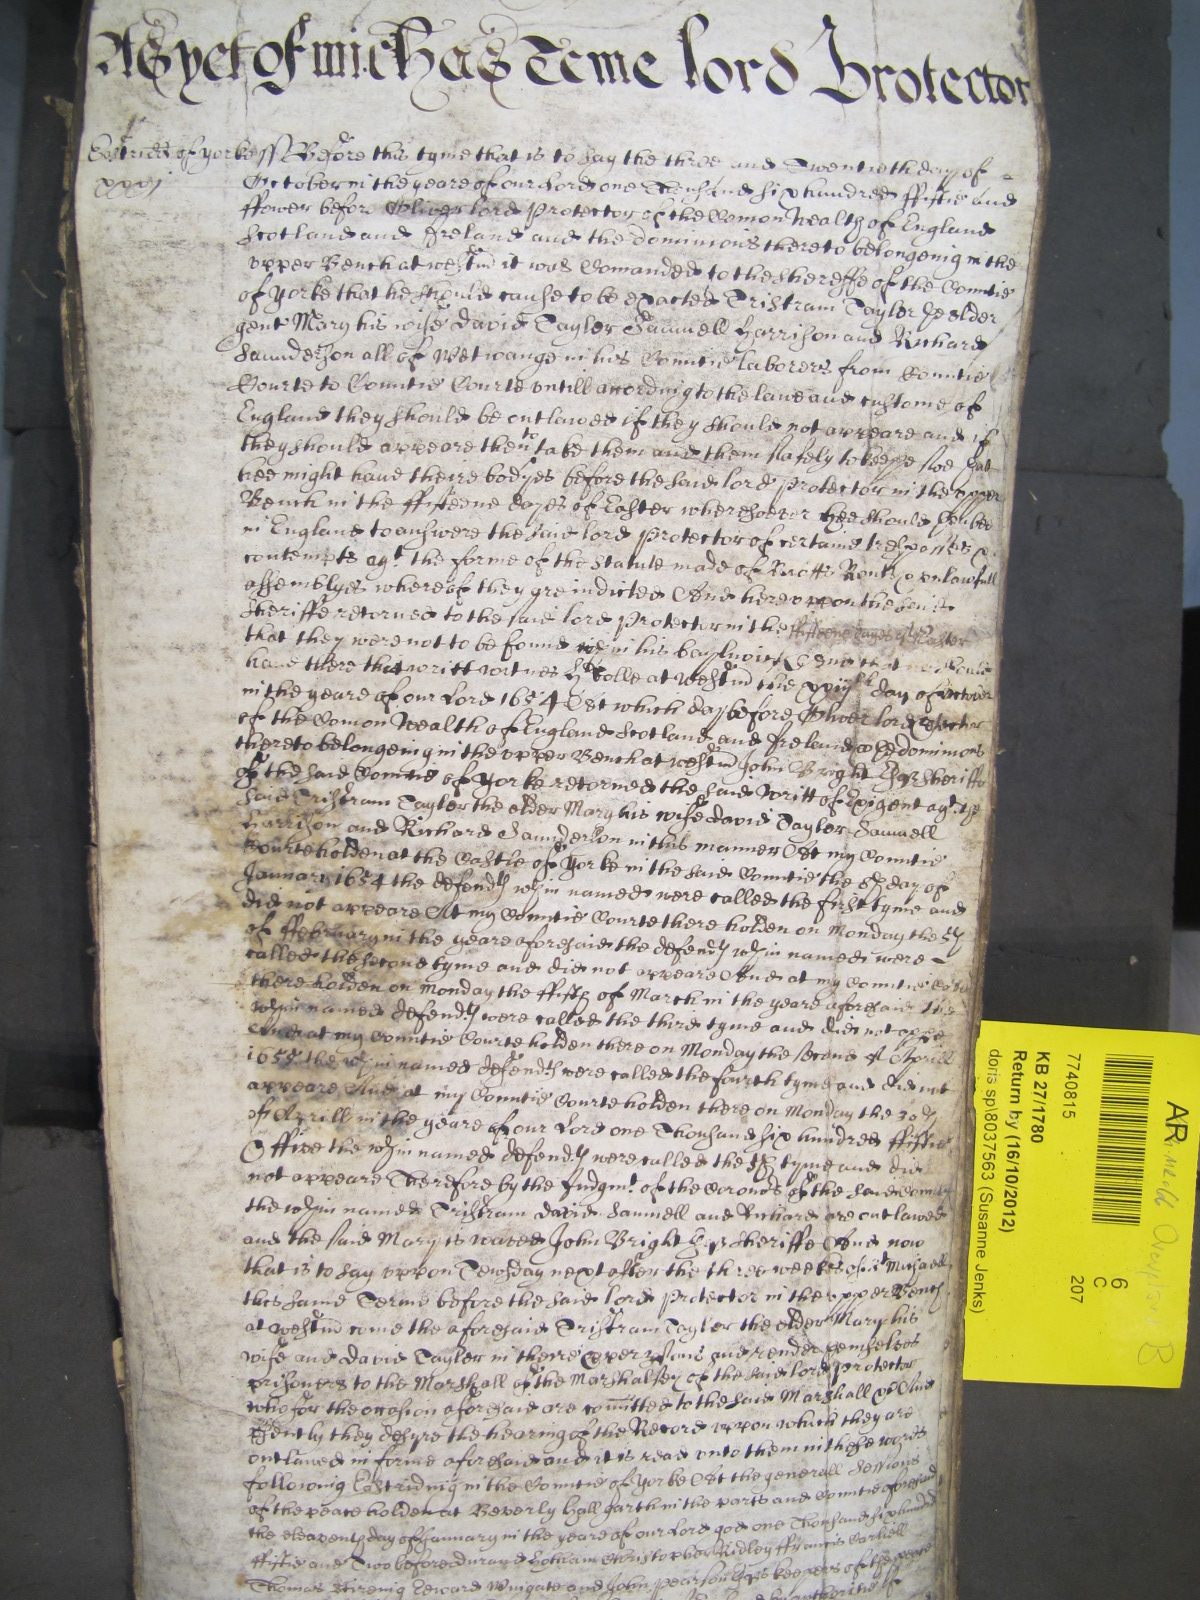 As yet of Mich'as Terme lord Protector
Eastrid of yorke ss Before this tyme that is to say the three and Twentieth day of
xxxj October in the yeare of our Lord one Thousand six hundred ffiftie and
ffower before Oliver lord Protector of the Comon Wealth of England
Scotland and Ireland and the dominions thereto belongeing in the
vpper Bench at Westm it was Comanded to the Shereffe of the Countie
of Yorke that he should cause to be exacted Tristram Tayler the elder
gent Mary his wife David Tayler Samuell Harrison and Richard
Saunderson all of Wetwange in his Countie laborers from Countie
Courte to Countie Courte vntill according to the lawe and custome of
England they should be outlawed if they should not appeare and if
they should appeare then to take them and them safely to keepe soe that
hee might have theire bodyes before the said lord Protector in the vpper
Bench in the ffifteene dayes of Easter wheresoever hee should then bee
in England to answere the said lord Protector of certaine trespasses &
contempts agt the forme of the Statute made of Riotts Routs & vnlawfull
assemblyes whereof they are indicted And herevpon the said
Sheriffe retorned to the said lord Protector in the ffifteene dayes of Easter
that they were not to be found in his baylywick And that
have there that writt witnes H Rolle at Westm the xxiijth day of October
in the yeare of our Lord 1654 At which day before Oliver lord Protector
of the Comon Wealth of England Scotland and Ireland & the dominions
thereto belongeing in the vpper Bench at Westm John Bright Esqr Sheriffe
of the said Countie of Yorke retorned the said Writt of Exigent agt the
said Tristram Tayler the elder Mary his wife David Tayler Samuell
Harrison and Richard Saunderson in this manner At my Countie
Courte holden at the Castle of Yorke in the said Countie the 8th day of
January 1654 the defendts wthin named were called the first tyme and
did not appeare At my Countie Courte there holden on Monday the 5th
of ffebruary in the yeare aforesaid the defendts wthin named were
called the second tyme and did not appeare And at my Countie Courte
there holden on Monday the ffifth of March in the yeare aforesaid the
wthin named defendts were called the third tyme and did not appeare
And at my Countie Courte holden there on Monday the second of Aprill
1655 the wthin named defendts were called the fourth tyme and did not
appeare And at my Countie Courte holden there on Monday the 30th
of Aprill in the yeare of our Lord one Thousand six hundred ffiftie
& ffive the wthin named defendts were called the 5th tyme and did
not appeare Therefore by the Judgmt of the Coronrs of the said Countie
the wthin named Tristram David Samuell and Richard are outlawed
and the said Mary is waved John Bright Esqr Sheriffe And now
that is to say vppon Tewsday next after the three weekes of St Michaell
this same Terme before the said lord Protector in the vpper Bench
at Westm come the aforesaid Tristram Tayler the elder Mary his
wife and David Tayler in theire pper psons and render themselves
prisoners to the Marshall of the Marshalsey of the said lord Protector
who for the occasion aforesaid are comitted to the said Marshall &c And
psently they desyre the hearing of the Record vppon which they are
outlawed in forme aforesaid and it is read vnto them in these words
following Eastriding in the Countie of Yorke At the generall Sessions
of the peace holden at Beverly Hall garth in the parts and Countie aforesaid
the eleaventh day of January in the yeare of our Lord god one Thousand six hundred
ffiftie and Two before durand Hotham Christopher Ridley ffrancis
Thomas Edward Wingate and John pearson Esqrs keepers of the peace
by authoritie of
7740815
KB 27/1780
Return by (16/10/2012)
doris sp\8037563 (Susanne Jenks)
6
C
207
AR
B